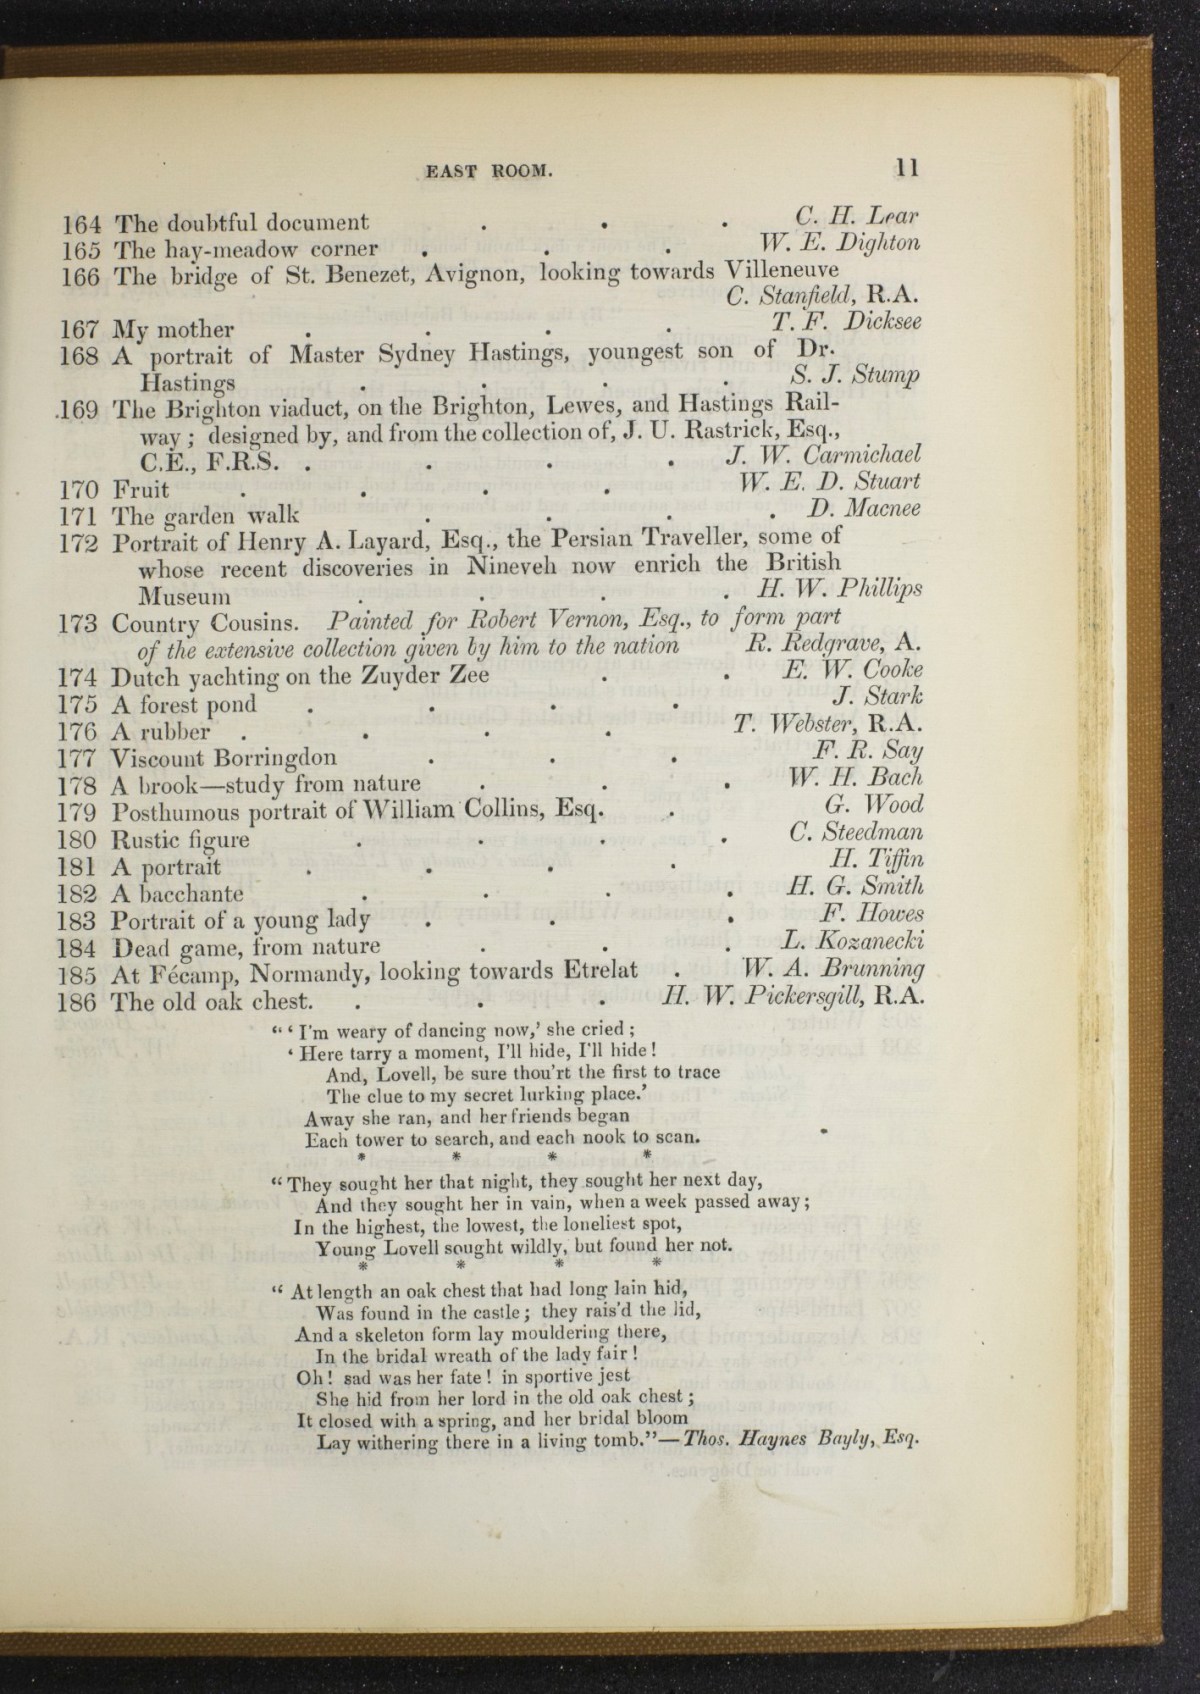 EAST ROOM. 11
164 The doubtful document . . . C. H. Lear
165 The hay-meadow corner . . . W. E. Dighton
166 The bridge of St. Benezet, Avignon, looking towards Villeneuve
C. Stanfield, R.A.
167 My mother . . . . T. F. Dicksee
168 A portrait of Master Sydney Hastings, youngest son of Dr.
Hastings . . . . S. J. Stump
169 The Brighton viaduct, on the Brighton, Lewes, and Hastings Rail-
way ; designed by, and from the collection of, J. U. Rastrick, Esq.,
C.E., F.R.S. . . . . J. W. Carmichael
170 Fruit . . . . W. E. D. Stuart
171 The garden walk . . . . D. Macnee
172 Portrait of Henry A. Layard, Esq., the Persian Traveller, some of
whose recent discoveries in Nineveh now enrich the British
Museum . . . . H. W. Phillips
173 Country Cousins. Painted for Robert Vernon, Esq., to form part
of the extensive collection given by him to the nation R. Redgrave, A.
174 Dutch yachting on the Zuyder Zee . . E. W. Cooke
175 A forest pond . . . . J. Stark
176 A rubber . . . . T. Webster, R.A.
177 Viscount Borringdon . . . F. R. Say
178 A brook—study from nature . . . W. H. Bach
179 Posthumous portrait of William Collins, Esq. . G. Wood
180 Rustic figure . . . . C. Steedman
181 A portrait . . . . H. Tiffin
182 A bacchante . . . . H. G. Smith
183 Portrait of a young lady . . . F. Howes
184 Dead game, from nature . . . L. Kozanecki
185 At Fécamp, Normandy, looking towards Etrelat . W. A. Brunning
186 The old oak chest. . . . H. W. Pickersgill, R.A.
“ ‘ I'm weary of dancing now,’ she cried ;
‘ Here tarry a moment, I'll hide, I'll hide !
And, Lovell, be sure thou'rt the first to trace
The clue to my secret lurking place.’
Away she ran, and her friends began
Each tower to search, and each nook to scan.
* * * *
“ They sought her that night, they sought her next day,
And they sought her in vain, when a week passed away ;
In the highest, the lowest, the loneliest spot,
Young Lovell sought wildly, but found her not.
* * * *
“ At length an oak chest that had long lain hid,
Was found in the castle ; they rais'd the lid,
And a skeleton form lay mouldering there,
In the bridal wreath of the lady fair !
Oh ! sad was her fate ! in sportive jest
She hid from her lord in the old oak chest ;
It closed with a spring, and her bridal bloom
Lay withering there in a living tomb.”—Thos. Haynes Bayly, Esq.